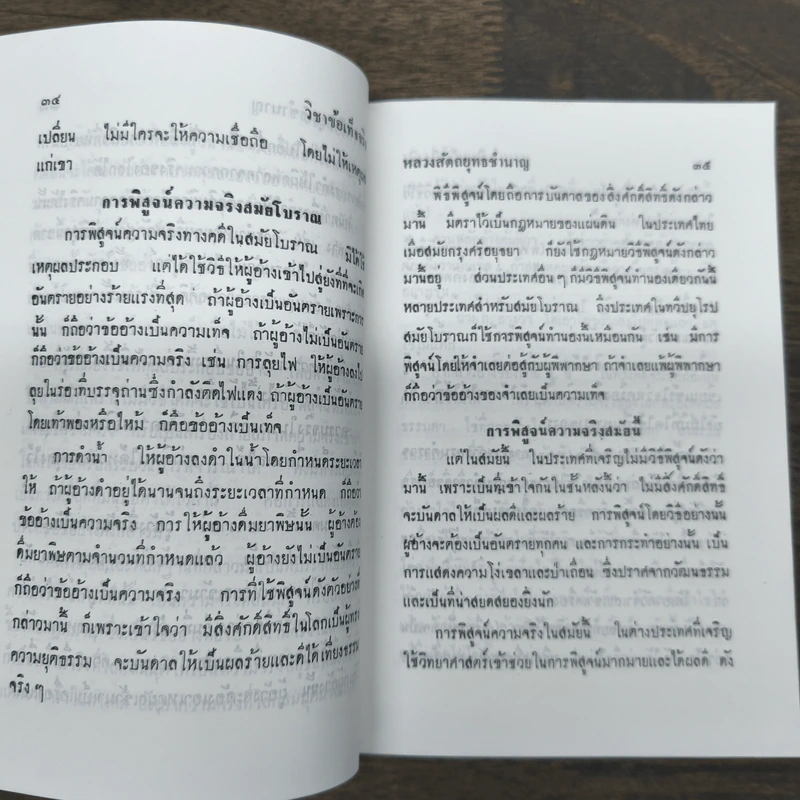 ๓๔
วิชาข้อเท็จจริง
เปลี่ยน ไม่มีใครจะให้ความเชื่อถือ โดยไม่ให้เหตุผล
แก่เขา
การพิสูจน์ความจริงสมัยโบราณ
การพิสูจน์ความจริงทางคดีในสมัยโบราณ มิได้ใช้
เหตุผลประกอบ แต่ได้ใช้วิธีให้ผู้อ้างเข้าไปสู่ยังที่ที่จะเกิด
อันตรายอย่างร้ายแรงที่สุด ถ้าผู้อ้างเป็นอันตรายเพราะการ
นั้น ก็ถือว่าข้ออ้างเป็นความเท็จ ถ้าผู้อ้างไม่เป็นอันตราย
ก็ถือว่าข้ออ้างเป็นความจริง เช่น การลุยไฟ ให้ผู้อ้างลงไป
ลุยในร่องที่บรรจุถ่านซึ่งกำลังติดไฟแดง ถ้าผู้อ้างเป็นอันตราย
โดยเท้าพองหรือไหม้ ก็คือข้ออ้างเป็นเท็จ
การดำน้ำ ให้ผู้อ้างลงดำในน้ำโดยกำหนดระยะเวลา
ให้ ถ้าผู้อ้างดำอยู่ได้นานจนถึงระยะเวลาที่กำหนด ก็ถือว่า
ข้ออ้างเป็นความจริง การให้ผู้อ้างดื่มยาพิษนั้น ผู้อ้างต้อง
ดื่มยาพิษตามจำนวนที่กำหนดแล้ว ผู้อ้างยังไม่เป็นอันตราย
ก็ถือว่าข้ออ้างเป็นความจริง การที่ใช้พิสูจน์ดังตัวอย่างที่
กล่าวมานี้ ก็เพราะเข้าใจว่า มีสิ่งศักดิ์สิทธิ์ในโลกเป็นผู้ทรง
ความยุติธรรม จะบันดาลให้เป็นผลร้ายและดีได้เที่ยงธรรม
จริง ๆ
หลวงสัดถยุทธชำนาญ
๓๕
พิธีพิสูจน์โดยถือการบันดาลของสิ่งศักดิ์สิทธิ์ดังกล่าว
มานี้ มีตราไว้เป็นกฎหมายของแผ่นดิน ในประเทศไทย
เมื่อสมัยกรุงศรีอยุธยา ก็ยังใช้กฎหมายวิธีพิสูจน์ดังกล่าว
มานี้อยู่ ส่วนประเทศอื่น ๆ ก็มีวิธีพิสูจน์ทำนองเดียวกันนี้
หลายประเทศสำหรับสมัยโบราณ ถึงประเทศในทวีปยุโรป
สมัยโบราณก็ใช้การพิสูจน์ทำนองนี้เหมือนกัน เช่น มีการ
พิสูจน์โดยให้จำเลยต่อสู้กับผู้พิพากษา ถ้าจำเลยแพ้ผู้พิพากษา
ก็ถือว่าข้ออ้างของจำเลยเป็นความเท็จ
การพิสูจน์ความจริงสมัยนี้
แต่ในสมัยนี้ ในประเทศที่เจริญไม่มีวิธีพิสูจน์ดังว่า
มานี้ เพราะเป็นที่เข้าใจกันในชั้นหลังนี้ว่า ไม่มีสิ่งศักดิ์สิทธิ์
จะบันดาลให้เป็นผลดีและผลร้าย การพิสูจน์โดยวิธีอย่างนั้น
ผู้อ้างจะต้องเป็นอันตรายทุกคน และการกระทำอย่างนั้น เป็น
การแสดงความโง่เขลาและป่าเถื่อน ซึ่งปราศจากวัฒนธรรม
และเป็นที่น่าสยดสยองยิ่งนัก
การพิสูจน์ความจริงในสมัยนี้ ในต่างประเทศที่เจริญ
ใช้วิทยาศาสตร์เข้าช่วยในการพิสูจน์มากมายและได้ผลดี ดัง